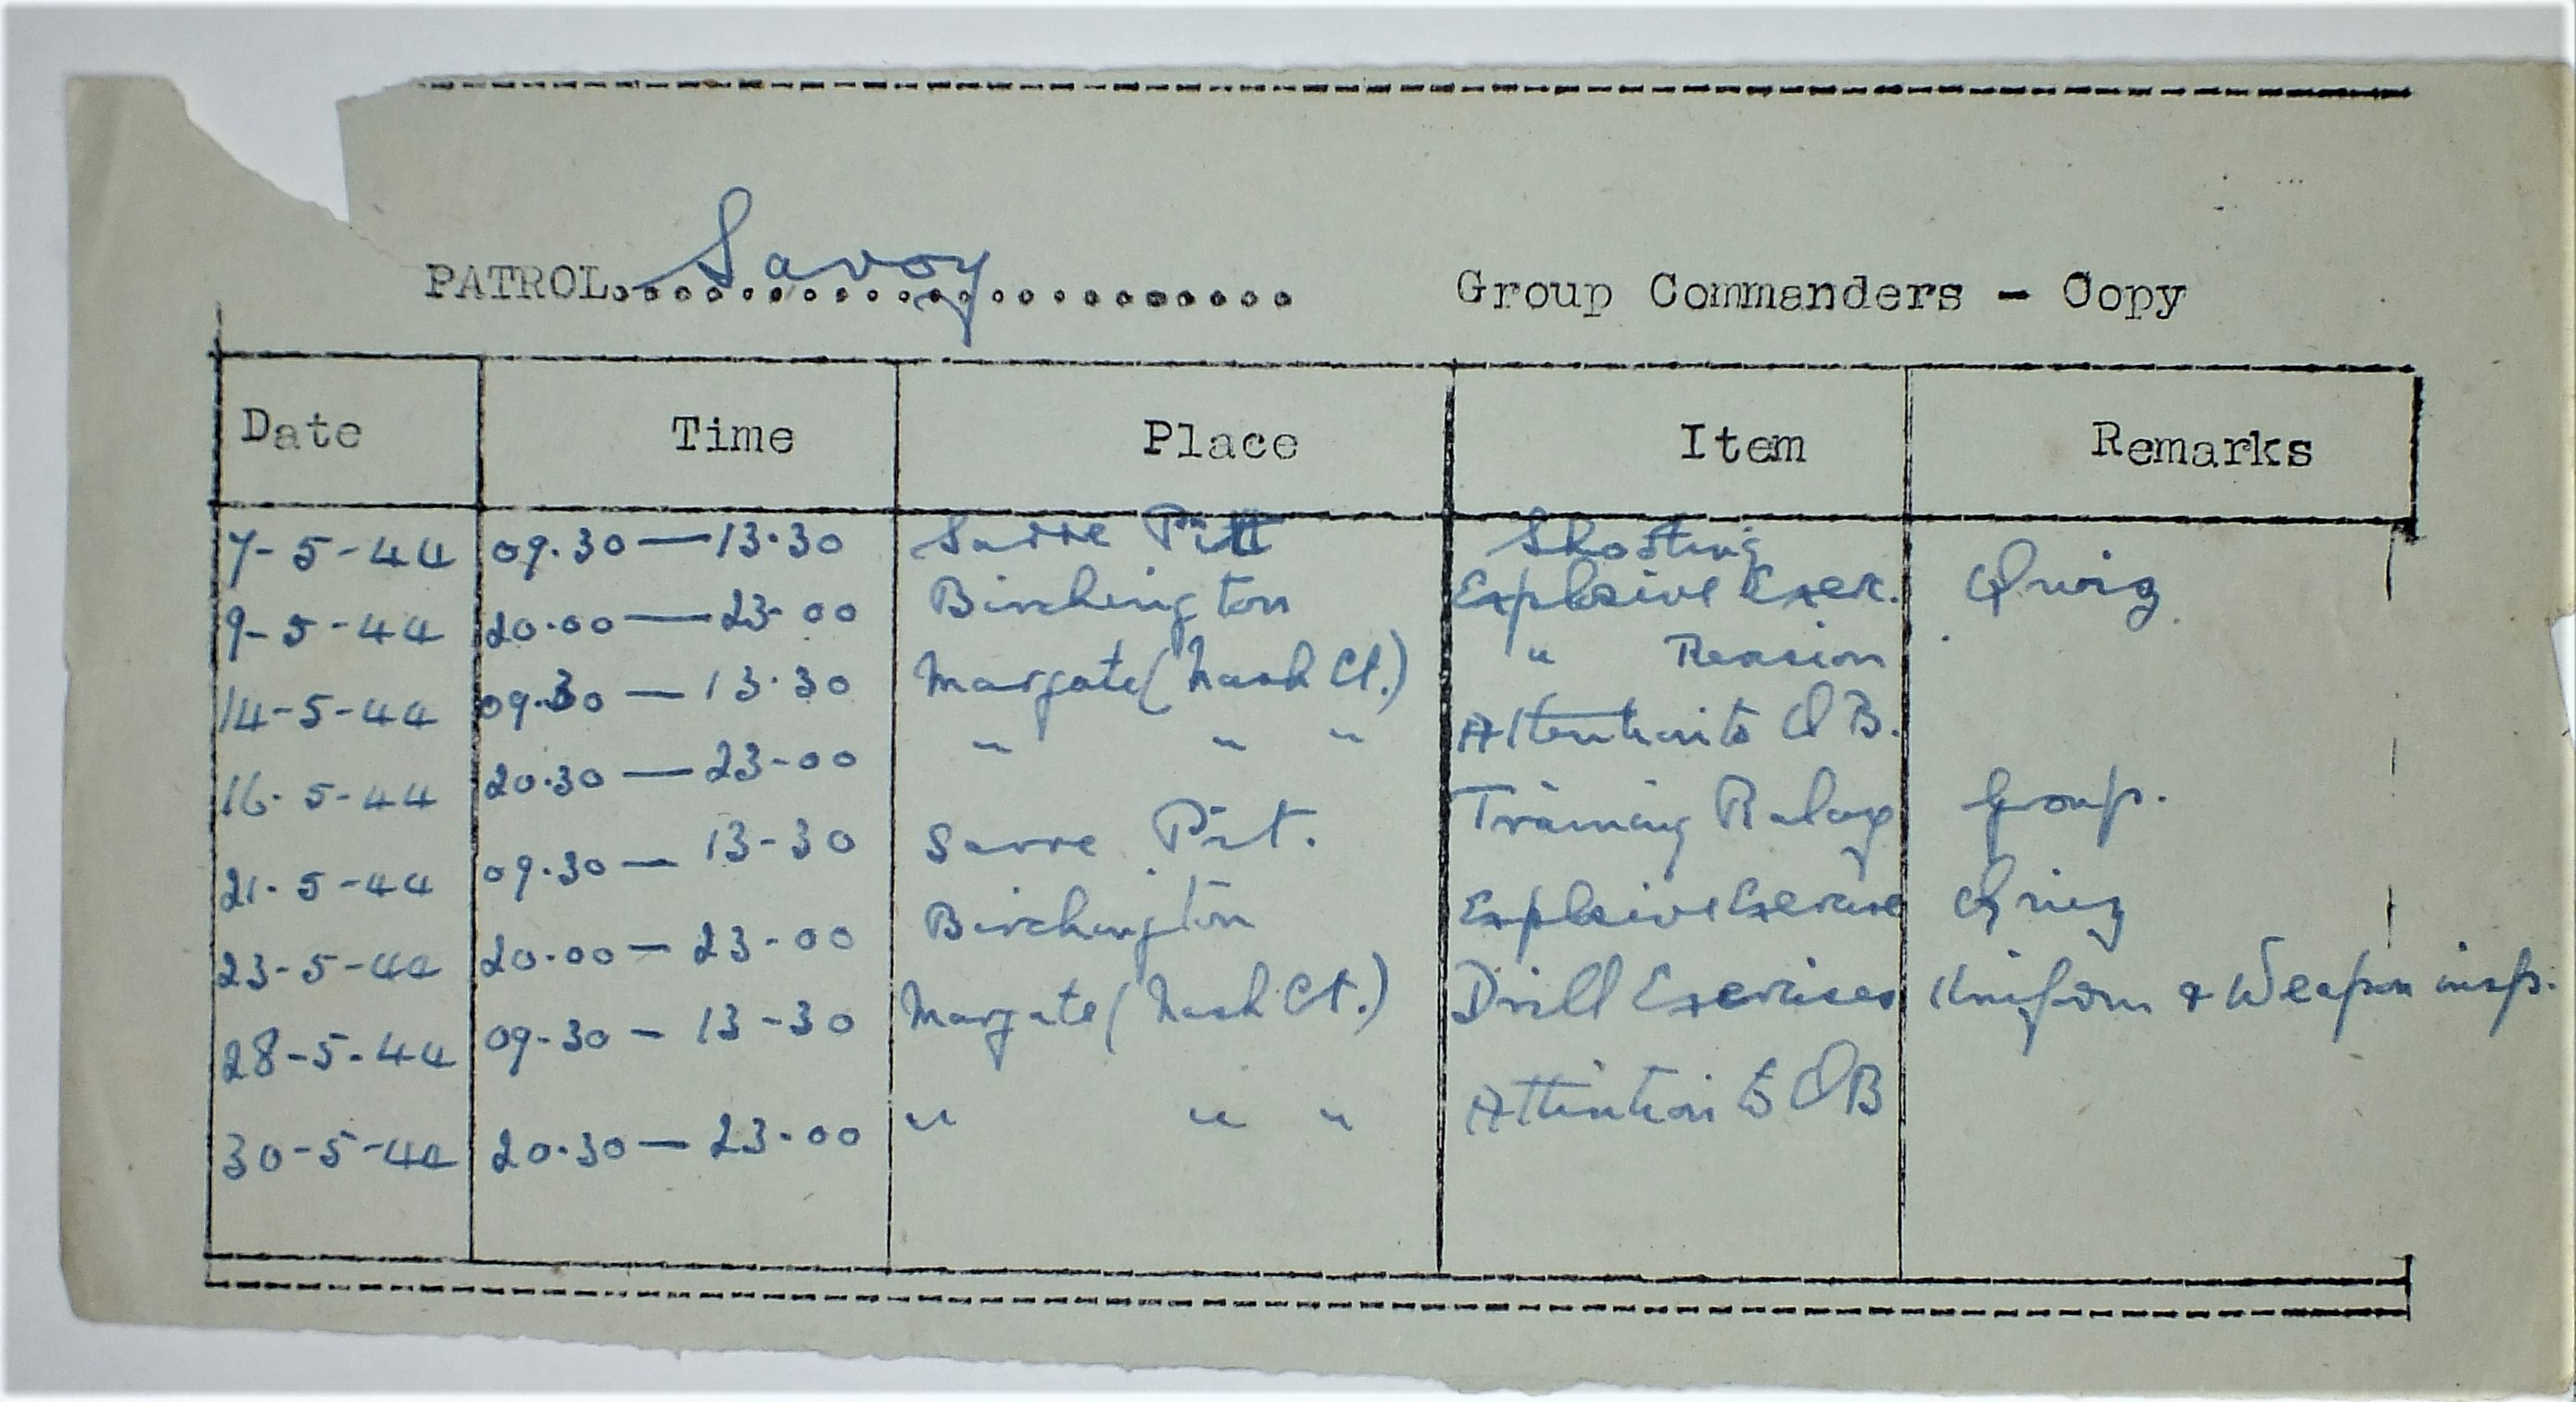 PATROL. Savoy .................... Group Commanders - Copy
Date Time Place Item Remarks
7-5-44 09.30—13.30 Sarre Pitt Shooting
9-5-44 20.00—23-00 Birchington Explosive Exer. Quiz
14-5-44 09.30—13.30 Margate (Nash Ct.) " Revision
16-5-44 20.30—23-00 " " " Attention to OB.
21-5-44 09.30—13-30 Sarre Pit. Training Group.
23-5-44 20.00—23-00 Birchington Explosive Exercise Quiz
28-5-44 09-30-13-30 Margate (Nash Ct.) Drill Exercises Uniform & Weapon insp.
30-5-44 20.30—23-00 " " " Attention to OB